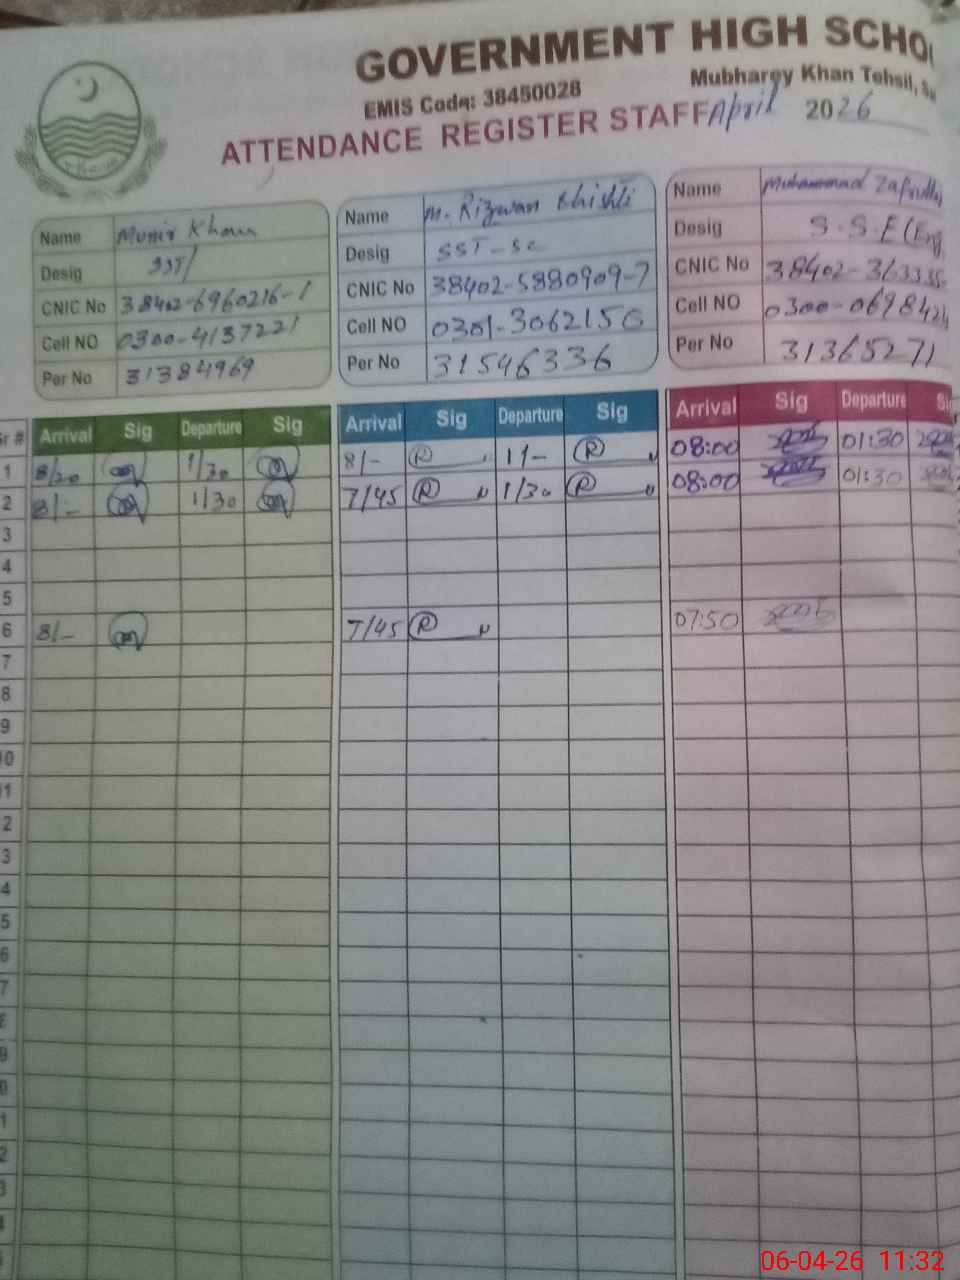 GOVERNMENT HIGH SCHO
EMIS Code: 38450028
Mubharey Khan Tehsil,
ATTENDANCE REGISTER STAFF April 2026
Name Munir Khan
Desig SST
CNIC No 38402-6960216-1
Cell NO 0300-4137221
Per No 31384969
Name M. Rizwan Chishti
Desig SST-Sc
CNIC No 38402-5880909-7
Cell NO 0301-3062156
Per No 31546336
Name Muhammad
Desig S.S.E (Eng
CNIC No 38402-
Cell NO 0300-069842
Per No 31365271
Sr # Arrival Sig Departure Sig Arrival Sig Departure Sig Arrival Sig Departure Sig
1 8/20 1/30 8/- R 11- R 08:00 01:30
2 8/- 1/30 7/45 R 1/30 R 08:00 01:30
3
4
5
6 8/- 7/45 R 07:50
7
8
9
10
1
2
3
4
5
6
7
8
9
0
1
2
3
4
06-04-26 11:32